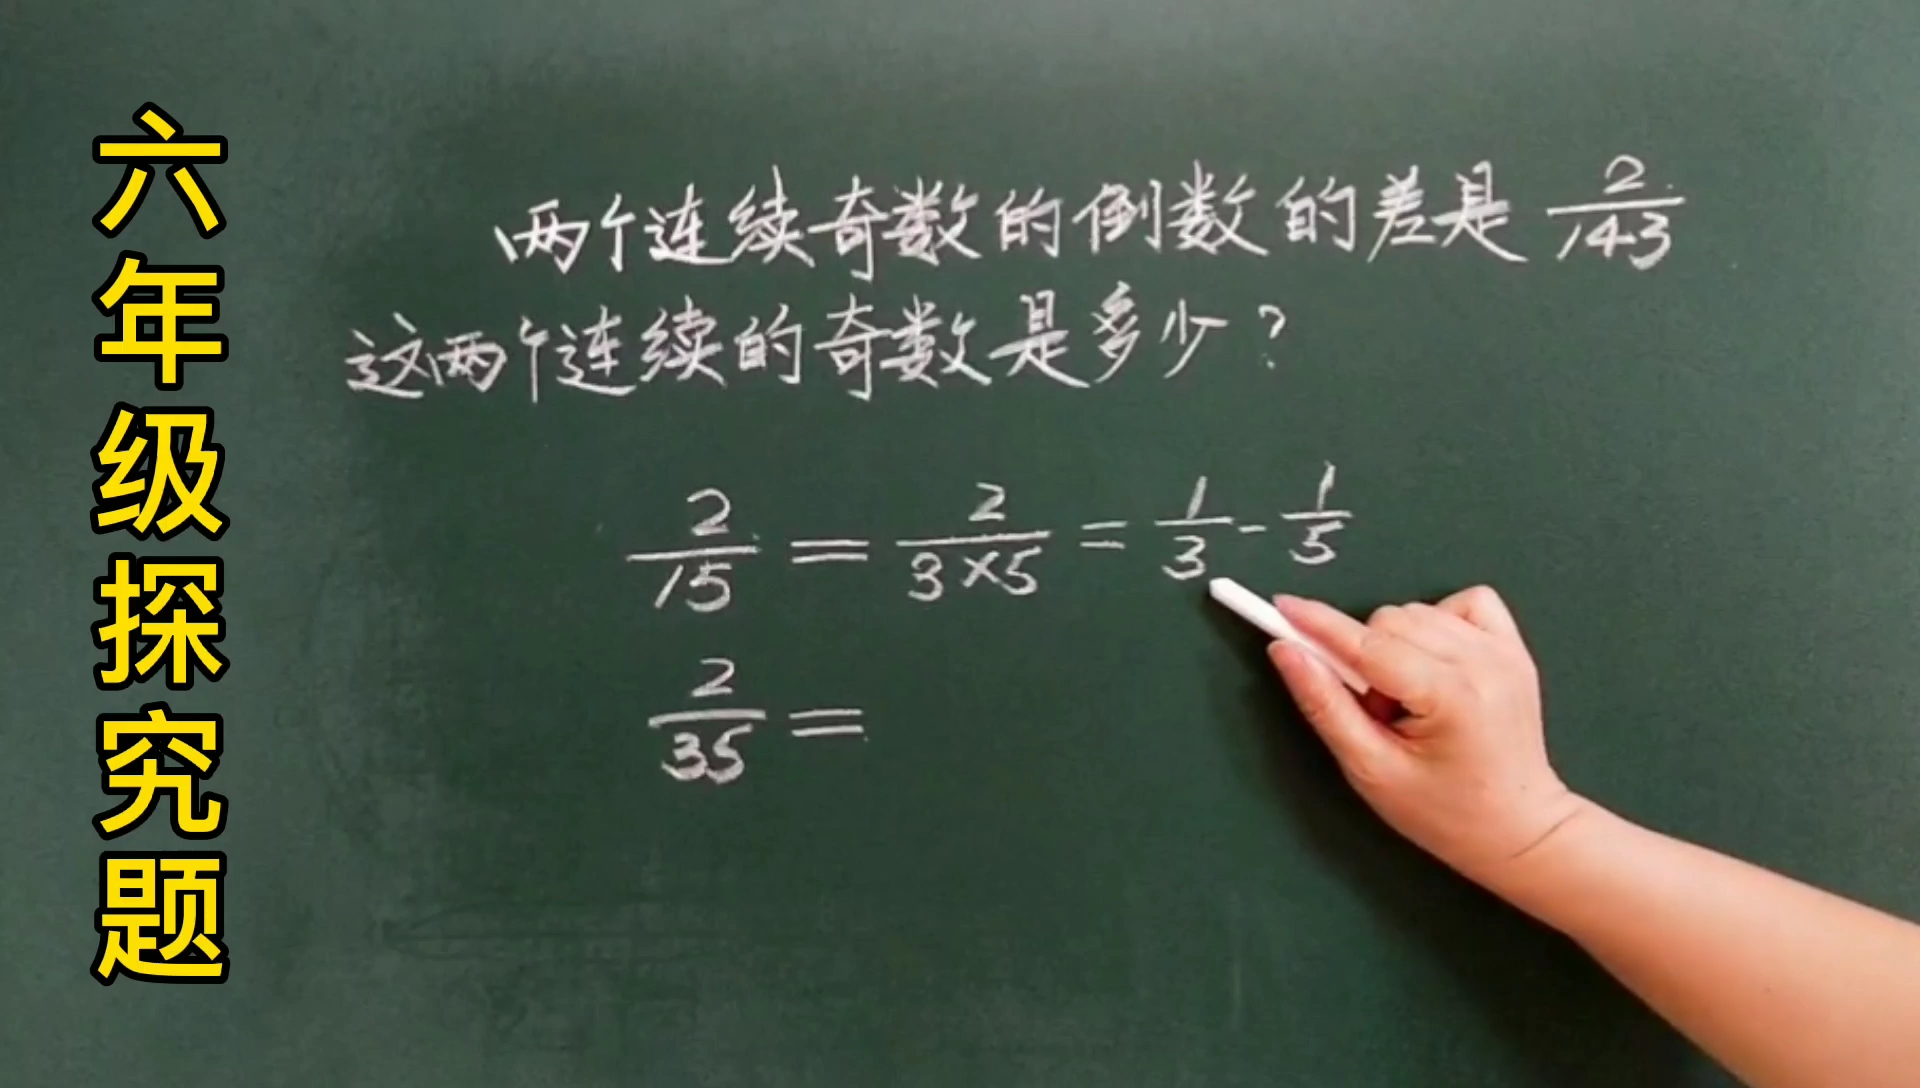 六年级探究题
两个连续奇数的倒数的差是 2/143
这两个连续的奇数是多少?
2/15 = 2/3×5 = 1/3 - 1/5
2/35 =